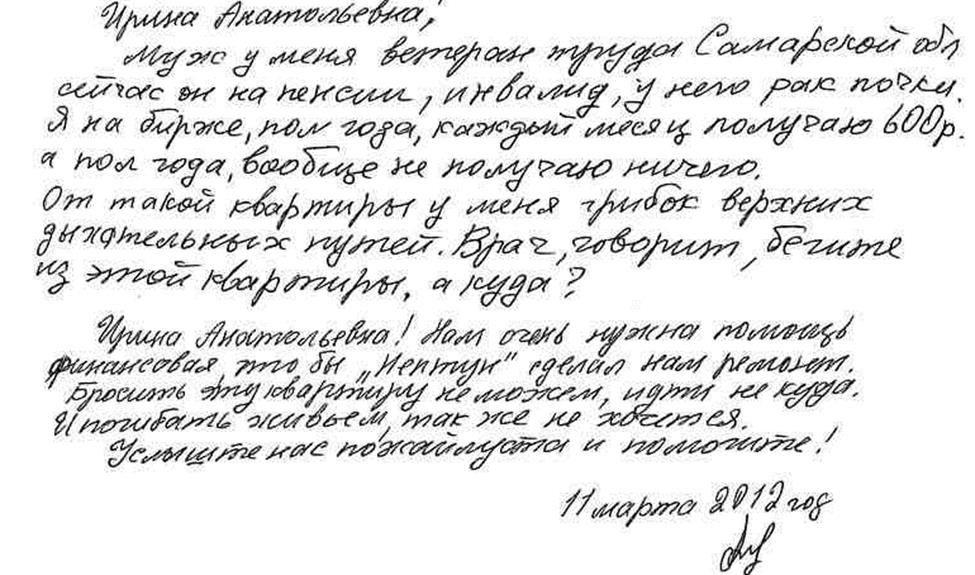 Ирина Анатольевна!
Муж у меня ветеран труда Самарской обл
сейчас он на пенсии, инвалид, у него рак почки.
Я на бирже, пол года, каждый месяц получаю 600р.
а пол года, вообще не получаю ничего.
От такой квартиры у меня грибок верхних
дыхательных путей. Врач, говорит, бегите
из этой квартиры, а куда?
Ирина Анатольевна! Нам очень нужна помощь
финансовая, что бы „Нептун" сделал нам ремонт.
Бросить эту квартиру не можем, идти не куда.
И погибать живьем, так же не хочется.
Услыште нас пожайлуста и помогите!
11 марта 2012 год